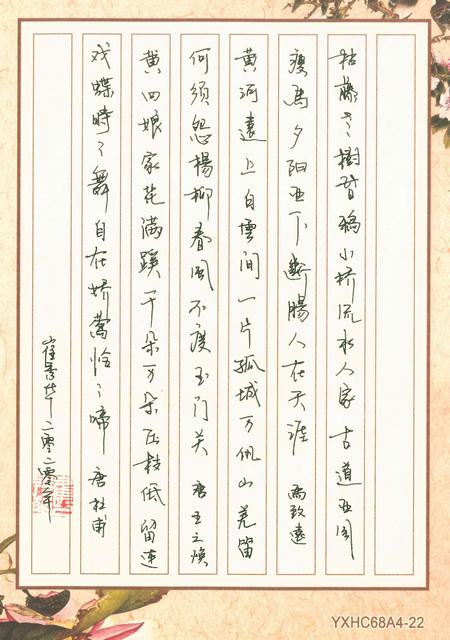 枯藤老樹昏鴉小桥流水人家古道西风
瘦馬夕阳西下斷腸人在天涯 馬致遠
黄河遠上白雲间一片孤城万仞山羌笛
何須怨楊柳春风不度玉门关 唐王之焕
黄四娘家花满蹊千朵万朵压枝低留連
戏蝶時々舞自在娇莺恰々啼 唐杜甫
二零二零年
YXHC68A4-22